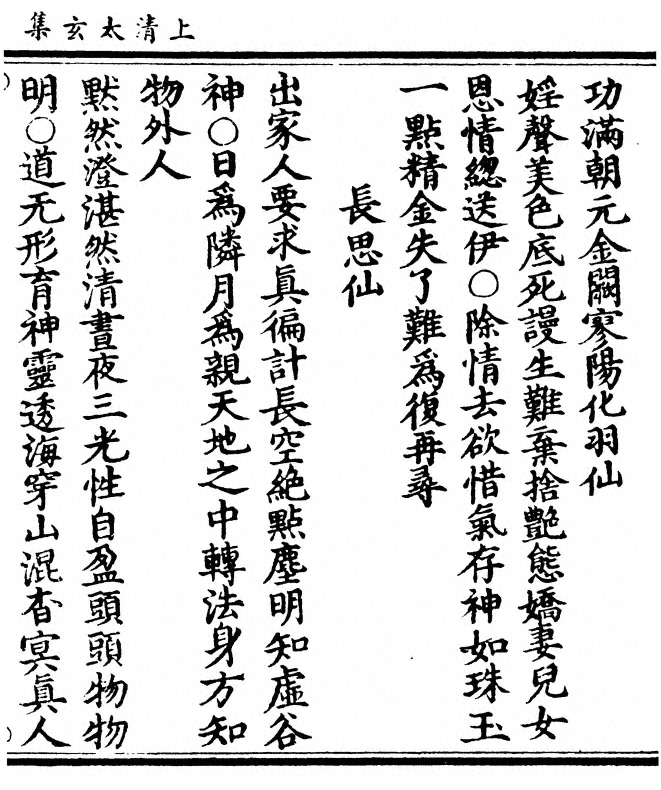 上清太玄集
功滿朝元金闕寥陽化羽仙
婬聲美色底死謾生難棄捨艷態嬌妻兒女
恩情緫送伊○除情去欲惜氣存神如珠玉
一點精金失了難爲復再尋
長思仙
出家人要求眞徧計長空絶點塵明知虛谷
神○日爲隣月爲親天地之中轉法身方知
物外人
黙然澄湛然清晝夜三光性自盈頭頭物物
明○道无形育神靈透海穿山混杳冥眞人